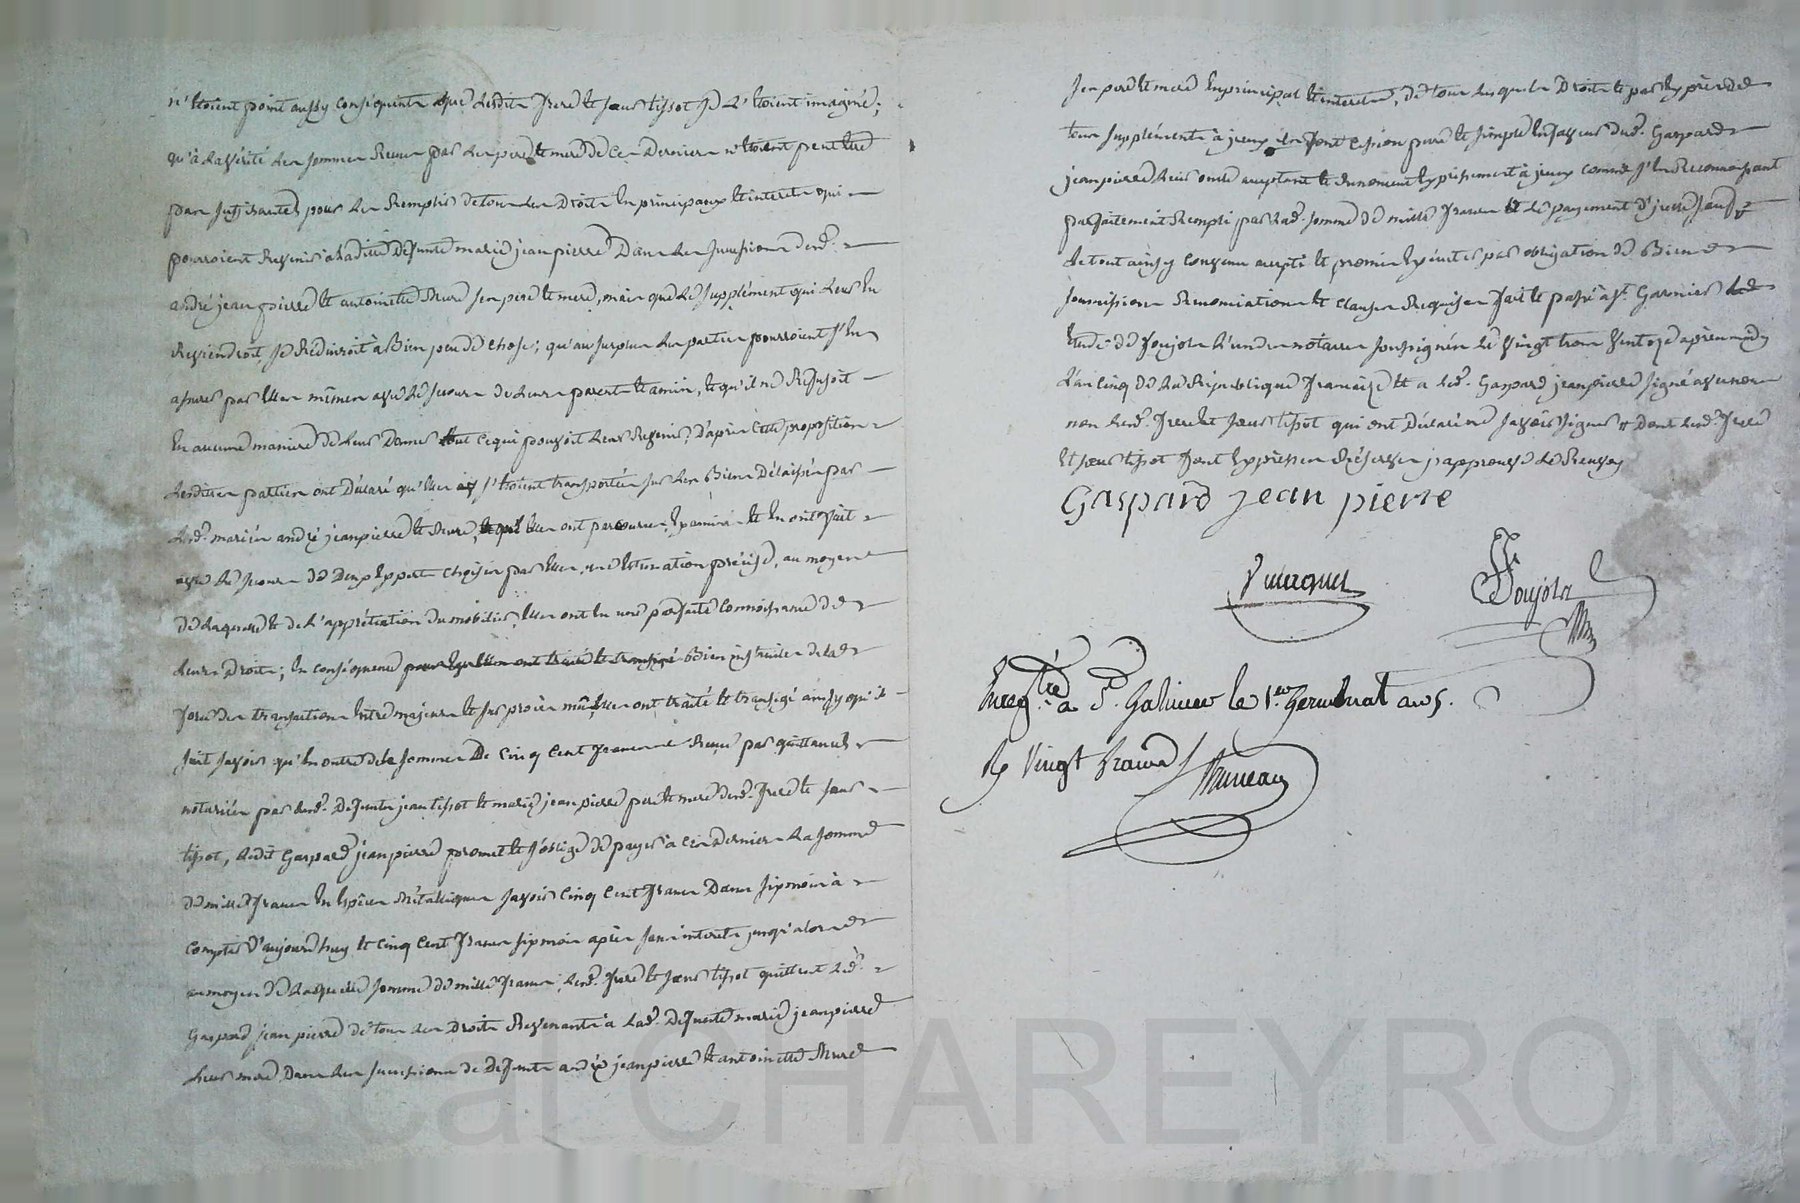 n'étoient point aussy conséquents que lesdits frere et soeur tissot se l'étoient imaginé;
qu'à la vérité les sommes reçues par les pere et mere de ces derniers n'étoient peut être
pas suffisantes pour les remplir de tous les droits en principaux et interets qui
pourroient revenir à ladite defunte marie jeanpierre dans les successions desd.
andré jeanpierre et antoinette Mure ses pere et mere, mais que le supplément qui leur en
reviendroit, se réduiroit à bien peu de chose; qu'au surplus les parties pourroient s'en
assurer par elles mêmes avec le secours de leurs parents et amis, et qu'il ne refusoit
en aucune maniere de leur donner tout ce qui pouvoit leur revenir; d'après cette proposition
lesdites parties ont déclaré qu'elles s'étoient transportées sur les biens délaissés par
lesd. mariés andré jeanpierre et Mure, elles ont parcourus examiné et en ont fait
avec le secours de deux experts choisis par elles, une estimation précise, au moyen
de laquelle et de l'appréciation du mobilier, elles ont eu une parfaite connoissance de
leurs droits; en conséquence pour lesquelles ont traité et transigé bien instruites de la
force des transactions entre majeurs et sur procès mûs, elles ont traité et transigé ainsy qu'il
suit savoir qu'en outre de la somme de cinq cent francs reçue par quittances
notariées par lesd. defunts jean tissot et marie jeanpierre pere et mere desd. frere et soeur
tissot, ledit Gaspard jeanpierre promet et s'oblige de payer à ces derniers la somme
de mille francs en espèces métalliques savoir cinq cent francs dans six mois à
compter d'aujourd'huy et cinq cent francs six mois après sans interets jusqu'alors
au moyen de laquelle somme de mille francs, lesd. frere et soeur tissot quittent led.
Gaspard jeanpierre de tous les droits revenants à lad. defunte marie jeanpierre
leur mere dans les successions de defunts andré jeanpierre et antoinette Mure
ses pere et mere en principal et interets, de tous lesquels droits et par exprès de
leur supplément à iceux ils font cession pure et simple en faveur dud. Gaspard
jeanpierre leur oncle acceptant et renoncent expressement à iceux comme s'en reconnaissant
parfaitement remplis par lad. somme de mille francs et le payement d'icelle sauf
le tout ainsy convenu accepté et promis exécuter par obligation de biens
soumissions renonciations et clauses requises fait et passé à St. Garmier
étude de Joujolz l'un des notaires soussignés le vingt trois ventose après midy
l'an cinq de la République française et a led. Gaspard jeanpierre signé avec nous
non lesd. frere et soeur tissot qui ont déclaré ne savoir signer # dont lesd. frere
et soeur tissot font expresses réserves j'approuve le renvoy
Gaspard jean pierre
Joujolz
Enregtré à St. Galmier le 1er. Germinal an 5.
R vingt francs